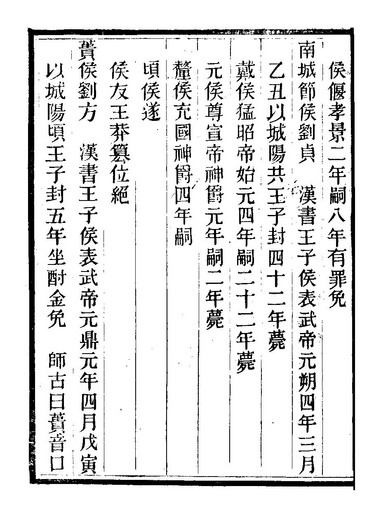 侯偃孝景二年嗣八年有罪免
南城節侯劉貞　漢書王子侯表武帝元朔四年三月
乙丑以城陽共王子封四十二年薨
戴侯猛昭帝始元四年嗣二十二年薨
元侯尊宣帝神爵元年嗣二年薨
釐侯充國神爵四年嗣
頃侯遂
侯友王莽簒位絕
蕢侯劉方　漢書王子侯表武帝元鼎元年四月戊寅
以城陽頃王子封五年坐酎金免　師古曰蕢音口